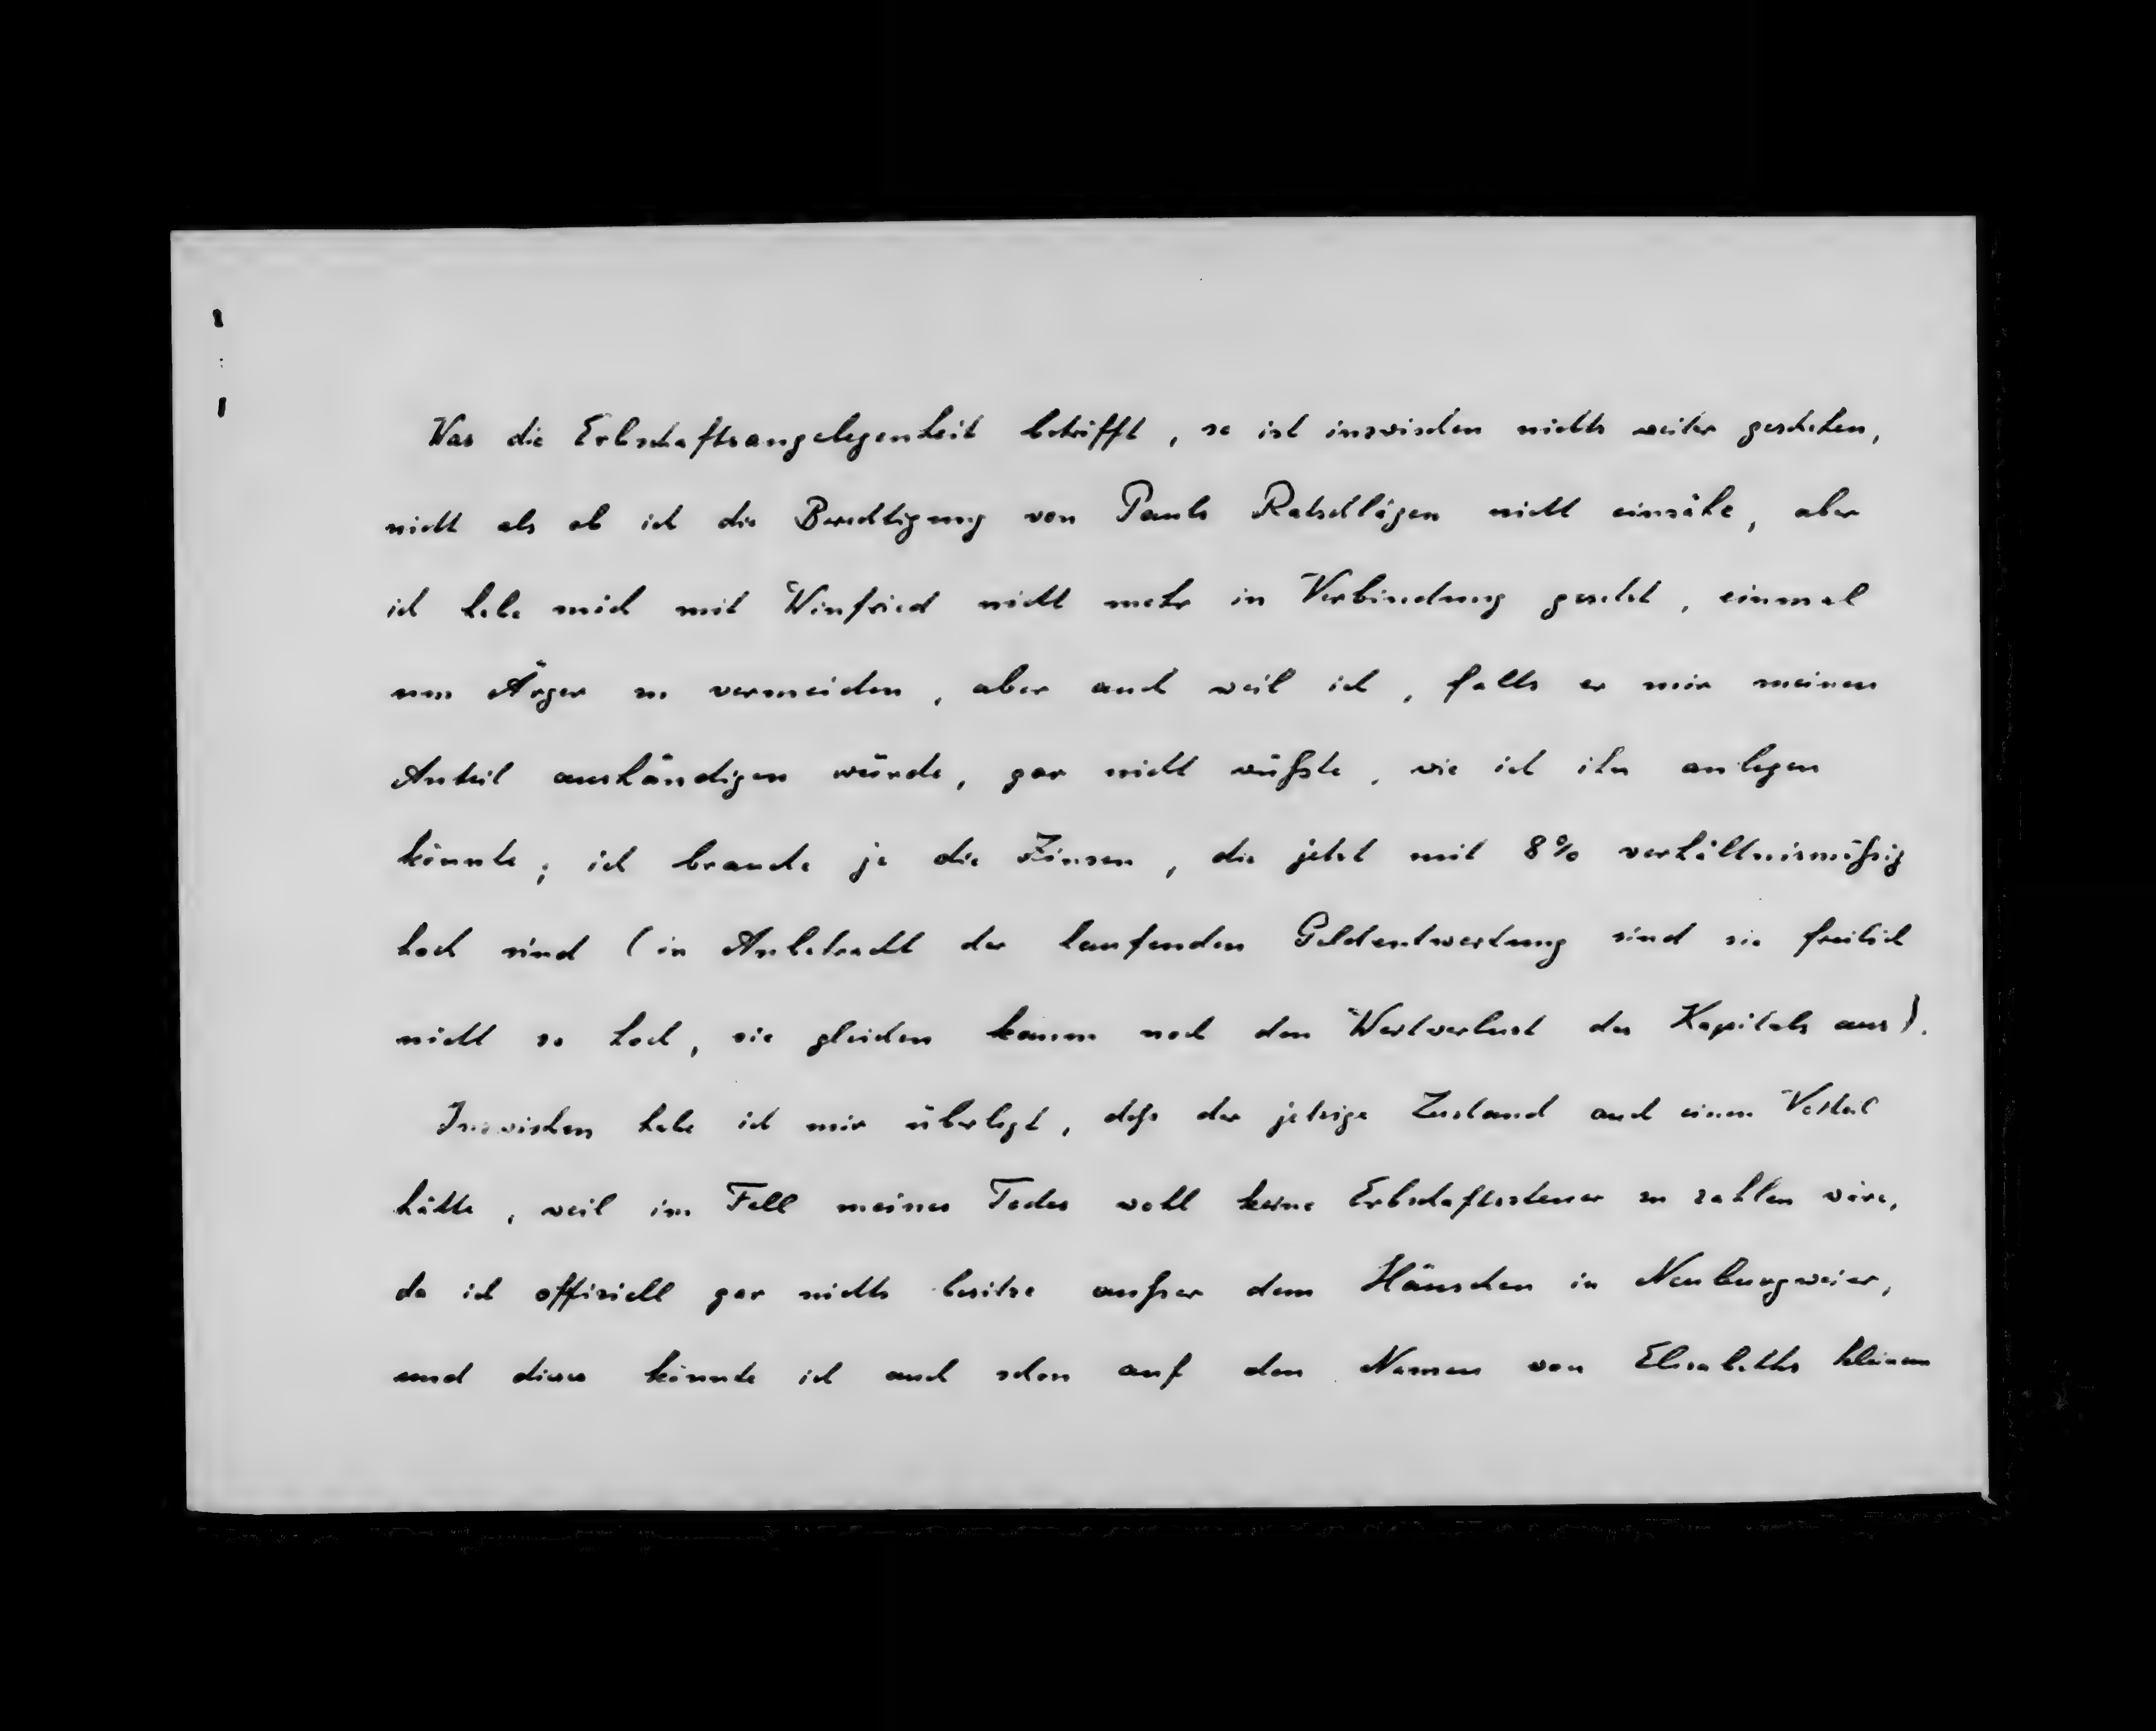 Was die Erbschaftsangelegenheit betrifft, so ist inzwischen nichts weiter geschehen,
nicht als ob ich die Berechtigung von Pauls Ratschlägen nicht einsähe, aber
ich habe mich mit Winfried nicht mehr in Verbindung gesetzt, einmal
um Ärger zu vermeiden, aber auch weil ich, falls er mir meinen
Anteil aushändigen würde, gar nicht wüßte, wie ich ihn anlegen
könnte; ich brauche ja die Zinsen, die jetzt mit 8% verhältnismäßig
hoch sind (in Anbetracht der laufenden Geldentwertung sind sie freilich
nicht so hoch, sie gleichen kaum noch den Wertverlust des Kapitals aus).
Inzwischen habe ich mir überlegt, daß der jetzige Zustand auch einen Vorteil
hätte, weil im Fall meines Todes wohl keine Erbschaftssteuer zu zahlen wäre,
da ich offiziell gar nichts besitze außer dem Häuschen in Neuburgweier,
und dieses könnte ich auch schon auf den Namen von Elisabeths kleinem